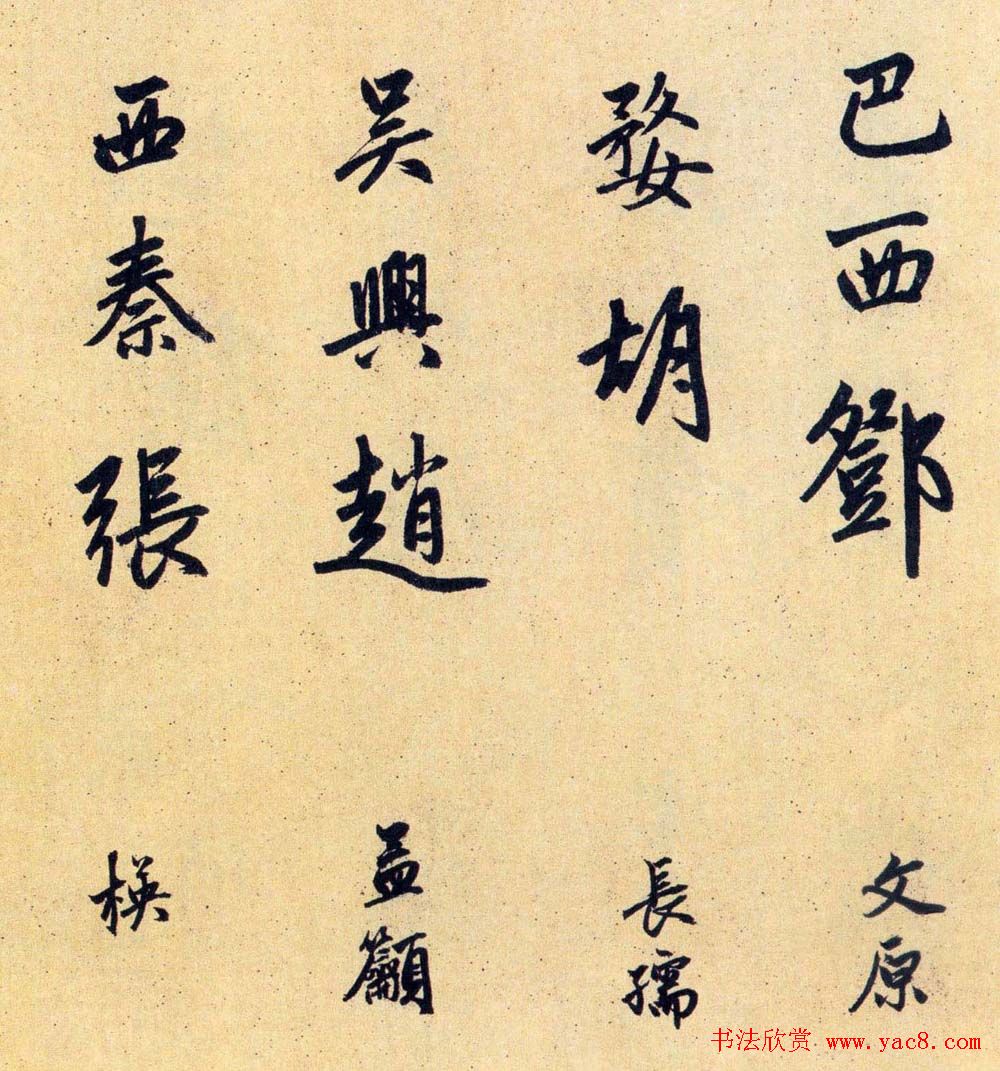 巴西鄧文原
婺胡長孺
吴興趙孟籲
西秦張楧
书法欣赏 www.yac8.com